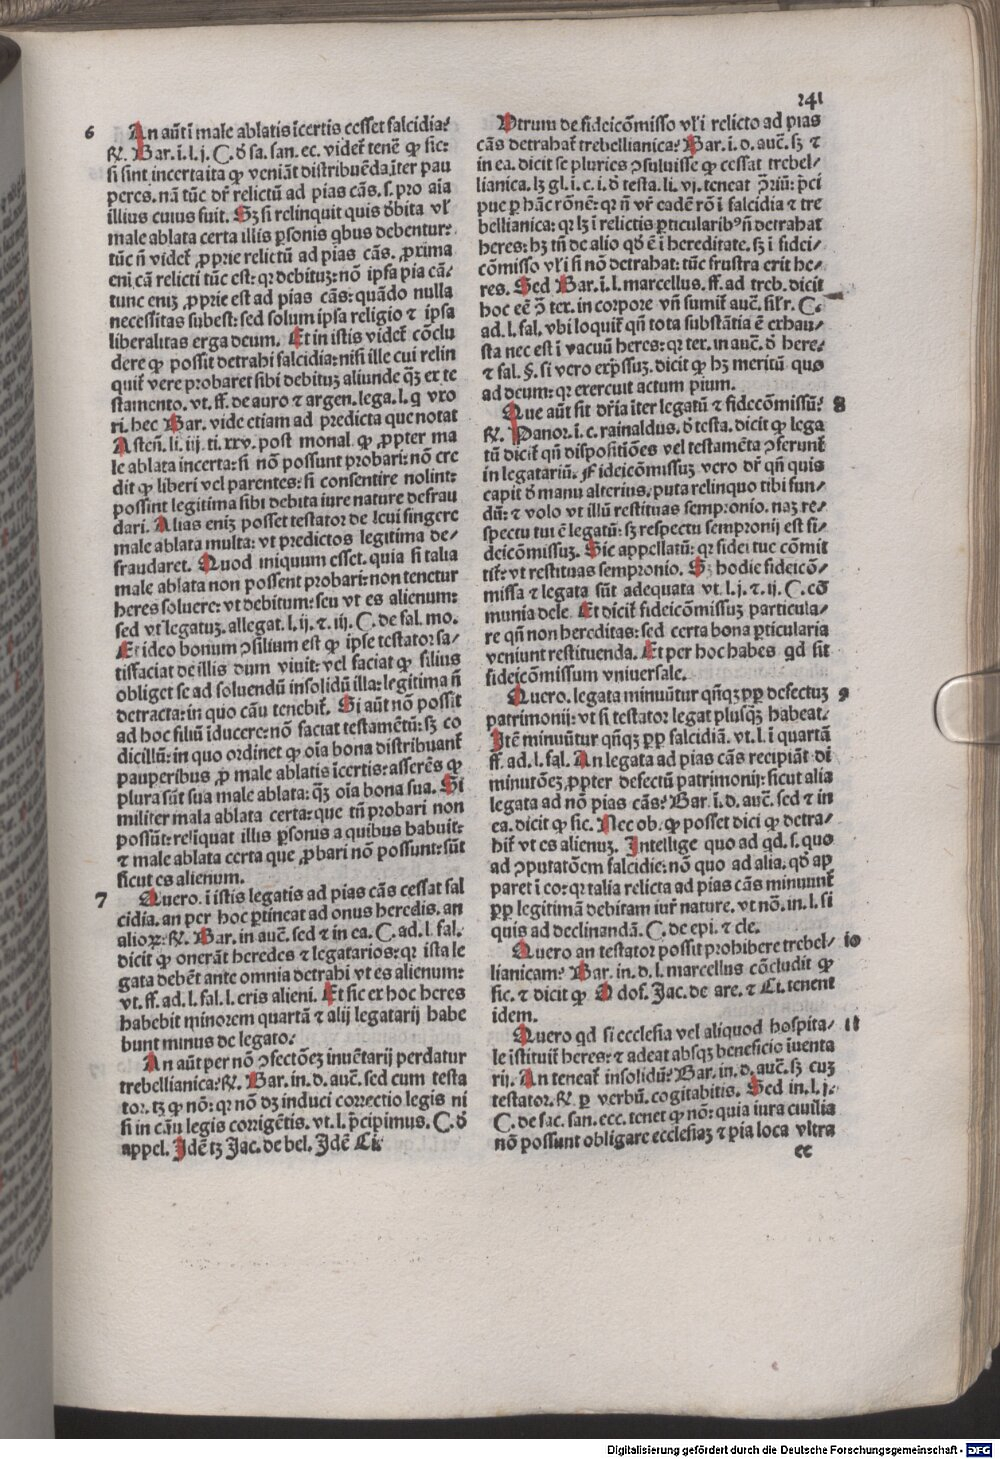 241
6 An aūt ī male ablatis īcertis cesset falcidia?
R̃. Bar. ī. l. j. C. ð sa. san. ec. videt̃ tenē ꝙ sic:
si sint incerta ita ꝙ veniāt distribuēda īter pau
peres. nā tūc dr̃ relictū ad pias cās. s. pro aīa
illius cuius fuit. Sʒ si relinquit quis ðbita vl̃
male ablata certa illis ꝑsonis qbus debentur:
tūc ñ videt̃ ꝓprie relictū ad pias cās. ꝓxima
eni cā relicti tūc est: qꝛ debituʒ: nō ipsa pia cā:
tunc eniʒ ꝓprie est ad pias cās: quādo nulla
necessitas subest: sed solum ipsa religio ⁊ ipsa
liberalitas erga deum. Et in istis videt̃ cōclu
dere ꝙ possit detrahi falcidia: nisi ille cui relin
quit̃ vere probaret sibi debituʒ aliunde q̃ʒ ex te
stamento. vt. ff. de auro ⁊ argen. lega. l. q vxo
ri. hec Bar. vide etiam ad predicta que notat
Asteñ. li. iij. ti. xxv. post monal. ꝙ ꝓpter ma
le ablata incerta: si nō possunt probari: nō cre
dit ꝙ liberi vel parentes: si consentire nolint:
possint legitima sibi debita iure nature defrau
dari. Alias eniʒ posset testator de leui fingere
male ablata multa: vt predictos legitima de/
fraudaret. Quod iniquum esset. quia si talia
male ablata non possent probari: non tenetur
heres soluere: vt debitum: seu vt es alienum:
sed vt legatuʒ. allegat. l. ij. ⁊. iij. C. de fal. mo.
Et ideo bonum ↄsilium est ꝙ ipse testator sa/
tisfaciat de illis dum viuit: vel faciat ꝙ filius
obliget se ad soluendū insolidū illa: legitima ñ
detracta: in quo cāu tenebit̃. Si aūt nō possit
ad hoc filiū iducere: nō faciat testamētū: sʒ co
dicillū: in quo ordinet ꝙ oīa bona distribuant̃
pauperibus ꝓ male ablatis īcertis: asserēs ꝙ
plura sūt sua male ablata: q̃ʒ oīa bona sua. Si
militer mala ablata certa: que tñ probari non
possūt: reliquat illis ꝑsonis a quibus habuit:
⁊ male ablata certa que ꝓbari nō possunt: sūt
sicut es alienum.
7 Quero. ī istis legatis ad pias cās cessat fal
cidia. an per hoc ꝑtineat ad onus heredis. an
alioꝝ: R̃. Bar. in auc̃. sed ⁊ in ea. C. ad. l. fal.
dicit ꝙ onerāt heredes ⁊ legatarios: qꝛ ista le
gata debēt ante omnia detrahi vt es alienum:
vt. ff. ad. l. fal. l. eris alieni. Et sic ex hoc heres
habebit minorem quartā ⁊ alij legatarij habe
bunt minus de legato.
An aūt per nō ↄfectōeʒ inuētarij perdatur
trebellianica: R̃. Bar. in. d. auc̃. sed cum testa
tor. tʒ ꝙ nō: qꝛ nō dʒ induci correctio legis ni
si in cāu legis corrigētis. vt. l. p̃cipimus. C. ð
appel. Idē tʒ Jac. de bel. Idē Ci.
Utrum de fideicōmisso vl̃i relicto ad pias
cās detrahat̃ trebellianica? Bar. ī. d. auc̃. sʒ ⁊
in ea. dicit se pluries ↄsuluisse ꝙ cessat trebel/
lianica. lʒ gl. i. c. i. ð testa. li. vj. teneat ↄ̃riū: p̃ci
pue ꝑ hāc rōnē: qꝛ ñ vr̃ cadē rō ī falcidia ⁊ tre
bellianica: qꝛ lʒ ī relictis ꝑticularibꝰ ñ detrahat
heres: hʒ tñ de alio qð ē ī hereditate. sʒ ī fidei/
cōmisso vl̃i si nō detrahat: tūc frustra erit he/
res. Sed Bar. ī. l. marcellus. ff. ad treb. dicit
hoc eē ↄ̃ tex. in corpore vñ sumit̃ auc̃. sil̃r. C.
ad. l. fal. vbi loquit̃ qñ tota substātia ē exhau/
sta nec est ī vacuū heres: qꝛ tex. in auc̃. ð here/
⁊ fal. §. si vero exp̃ssuʒ. dicit ꝙ hʒ meritū quo
ad deum: qꝛ exercuit actum pium.
Que aūt sit dr̃ia īter legatū ⁊ fideicōmissū? 8
R̃. Panor. ī. c. rainaldus. ð testa. dicit ꝙ lega
tū dicit̃ qñ dispositiōes vel testamēta ↄferunt̃
in legatariū. Fideicōmissuʒ vero dr̃ qñ quis
capit ð manu alterius. puta relinquo tibi fun/
dū: ⁊ volo vt illū restituas sempronio. naʒ re/
spectu tui ē legatū: sʒ respectu sempronij est fi/
deicōmissuʒ. Sic appellatū: qꝛ fidei tue cōmit
tit̃: vt restituas sempronio. Sʒ hodie fideicō/
missa ⁊ legata sūt adequata vt. l. j. ⁊. ij. C. cō
munia dele. Et dicit̃ fideicōmissuʒ particula/
re qñ non hereditas: sed certa bona ꝑticularia
veniunt restituenda. Et per hoc habes qd sit
fideicōmissum vniuersale.
Quero. legata minuūtur qñqʒ ꝓꝑ defectuʒ 9
patrimonij: vt si testator legat plusq̃ʒ habeat.
Itē minuūtur qñqʒ ꝓꝑ falcidiā. vt. l. ī quartā
ff. ad. l. fal. An legata ad pias cās recipiāt di
minutōeʒ ꝓpter defectū patrimonij: sicut alia
legata ad nō pias cās? Bar. ī. d. auc̃. sed ⁊ in
ea. dicit ꝙ sic. Nec ob. ꝙ posset dici ꝙ detra/
hit̃ vt es alienuʒ. Intellige quo ad qd. s. quo
ad ↄputatōem falcidie: nō quo ad alia. qð ap
paret ī co: qꝛ talia relicta ad pias cās minuunt̃
ꝓꝑ legitimā debitam iur̃ nature. vt nō. in. l. si
quis ad declinandā. C. de epi. ⁊ cle.
Quero an testator possit prohibere trebel/ 10
lianicam? Bar. in. d. l. marcellus cōcludit ꝙ
sic. ⁊ dicit ꝙ Odof. Jac. de are. ⁊ Ci. tenent
idem.
Quero qd si ecclesia vel aliquod hospita/ 11
le īstituit̃ heres: ⁊ adeat absqʒ beneficio īuenta
rij. An teneat̃ insolidū? Bar. in. d. auc̃. sʒ cuʒ
testator. R̃. ꝑ verbū. cogitabitis. Sed in. l. j.
C. de sac. san. ecc. tenet ꝙ nō: quia iura ciuilia
nō possunt obligare ecclesiaʒ ⁊ pia loca vltra
cc
Digitalisierung gefördert durch die Deutsche Forschungsgemeinschaft - DFG